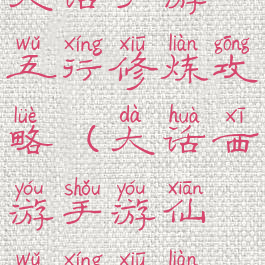 大话手游
wǔ xíng xiū liàn gōng
五行修炼攻
lüè dà huà xī
略（大话西
yóu shǒu yóu xiān
游手游仙
wǔ xíng xiū liàn